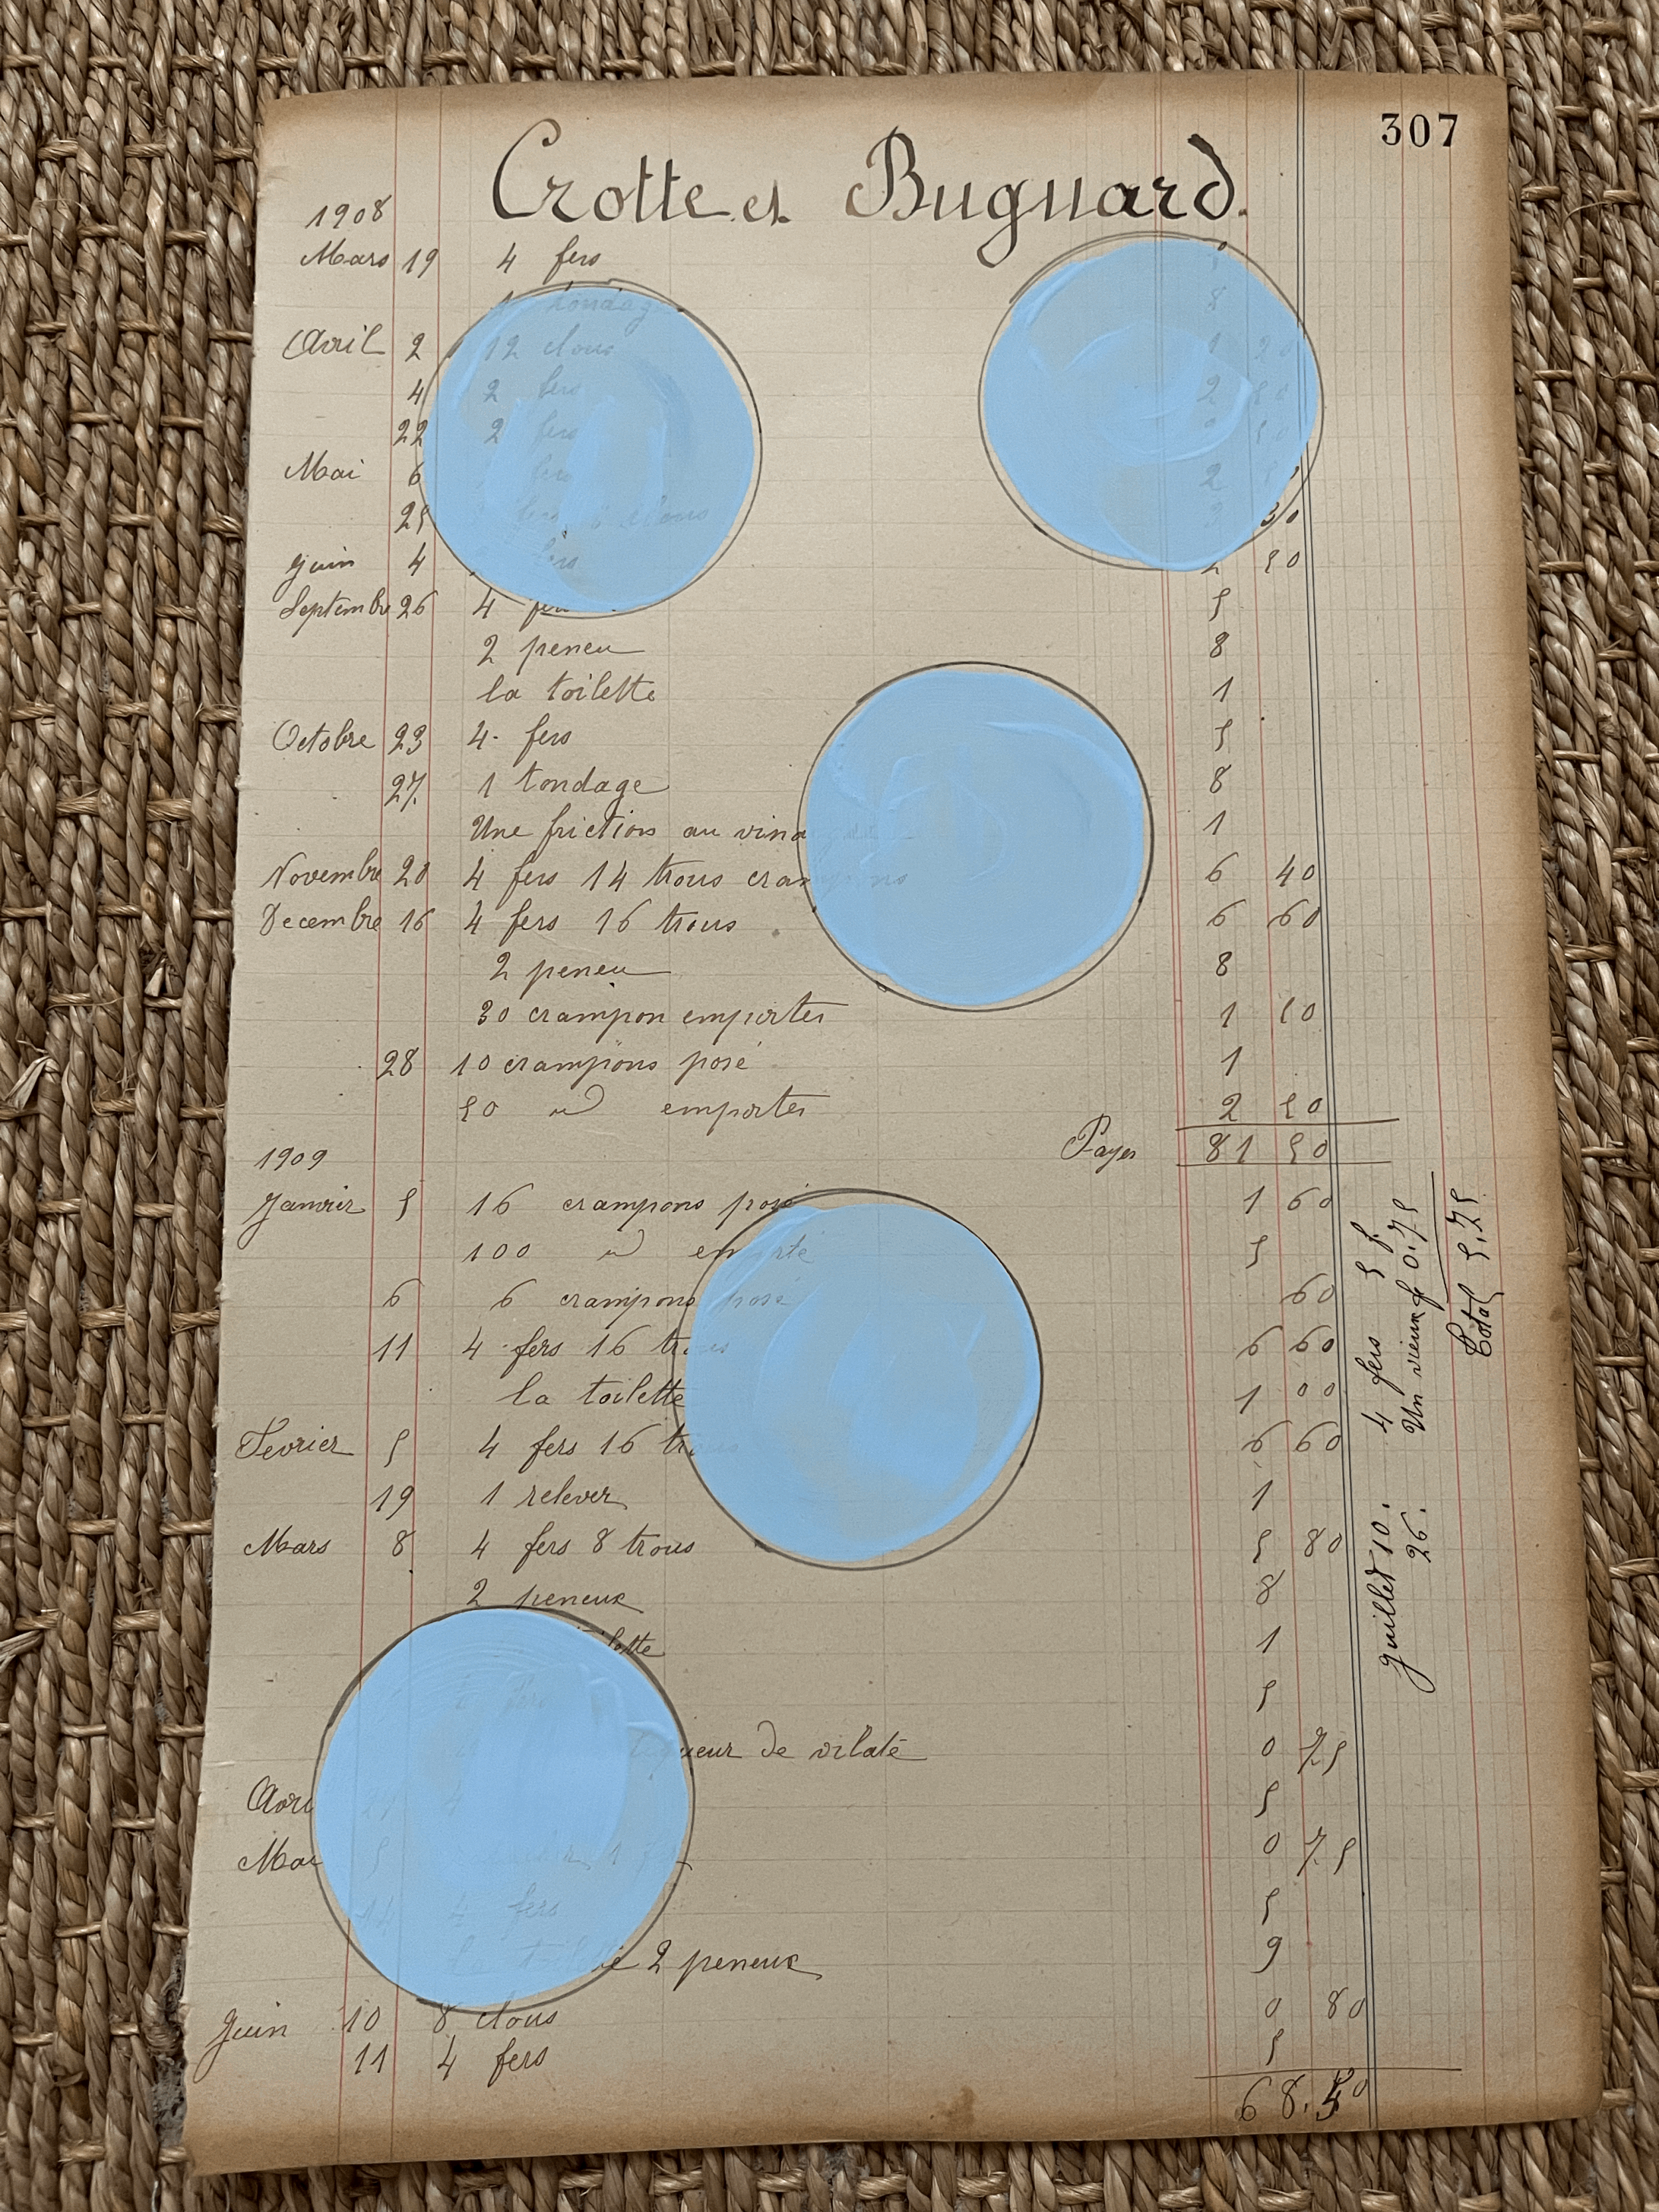 307
Crotte et Bugnard.
1908
Mars 19 4 fers
1 tondage 8
Avril 2 12 clous 1 20
4 2 fers 2 50
22 2 fers 50
Mai 6 fers 2
25 fers clous 30
Juin 4 fers 2 50
Septembre 26 4 fers 5
2 peneu 8
la toilette 1
Octobre 23 4 fers 5
27. 1 tondage 8
Une friction au vinaigre 1
Novembre 20 4 fers 14 trous crampons 6 40
Decembre 16 4 fers 16 trous 6 60
2 peneu 8
30 crampon emportes 1 50
28 10 crampons posé 1
50 id emportes 2 50
Payer 81 50
1909
Janvier 5 16 crampons posé 1 60
100 id emporté 5
6 6 crampons posé 60
11 4 fers 16 trous 6 60
la toilette 1 00
Fevrier 5 4 fers 16 trous 6 60
19 1 relever 1
Mars 8 4 fers 8 trous 5 80
2 peneux 8
toilette 1
4 fers 5
liqueur de vilate 0 75
Avril 21 4 5
Mai 5 1 0 75
14 4 fers 5
La toilette 2 peneux 9
Juin 10 8 clous 0 80
11 4 fers 5
68.50
Juillet 10. 4 fers 5 f.
26. Un vieux f 0.75
Total 5.75